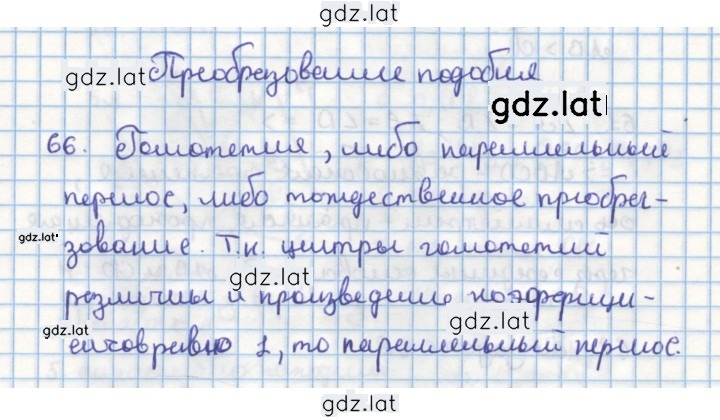 gdz.lat
Преобразование подобия
gdz.lat
gdz.lat
66. Гомотетия, либо параллельный
перенос, либо тождественное преобра-
gdz.lat
зование. Т.к. центры гомотетий
gdz.lat
различны и произведение коэффици-
gdz.lat
gdz.lat
ентов равно 1, то параллельный перенос.
gdz.lat